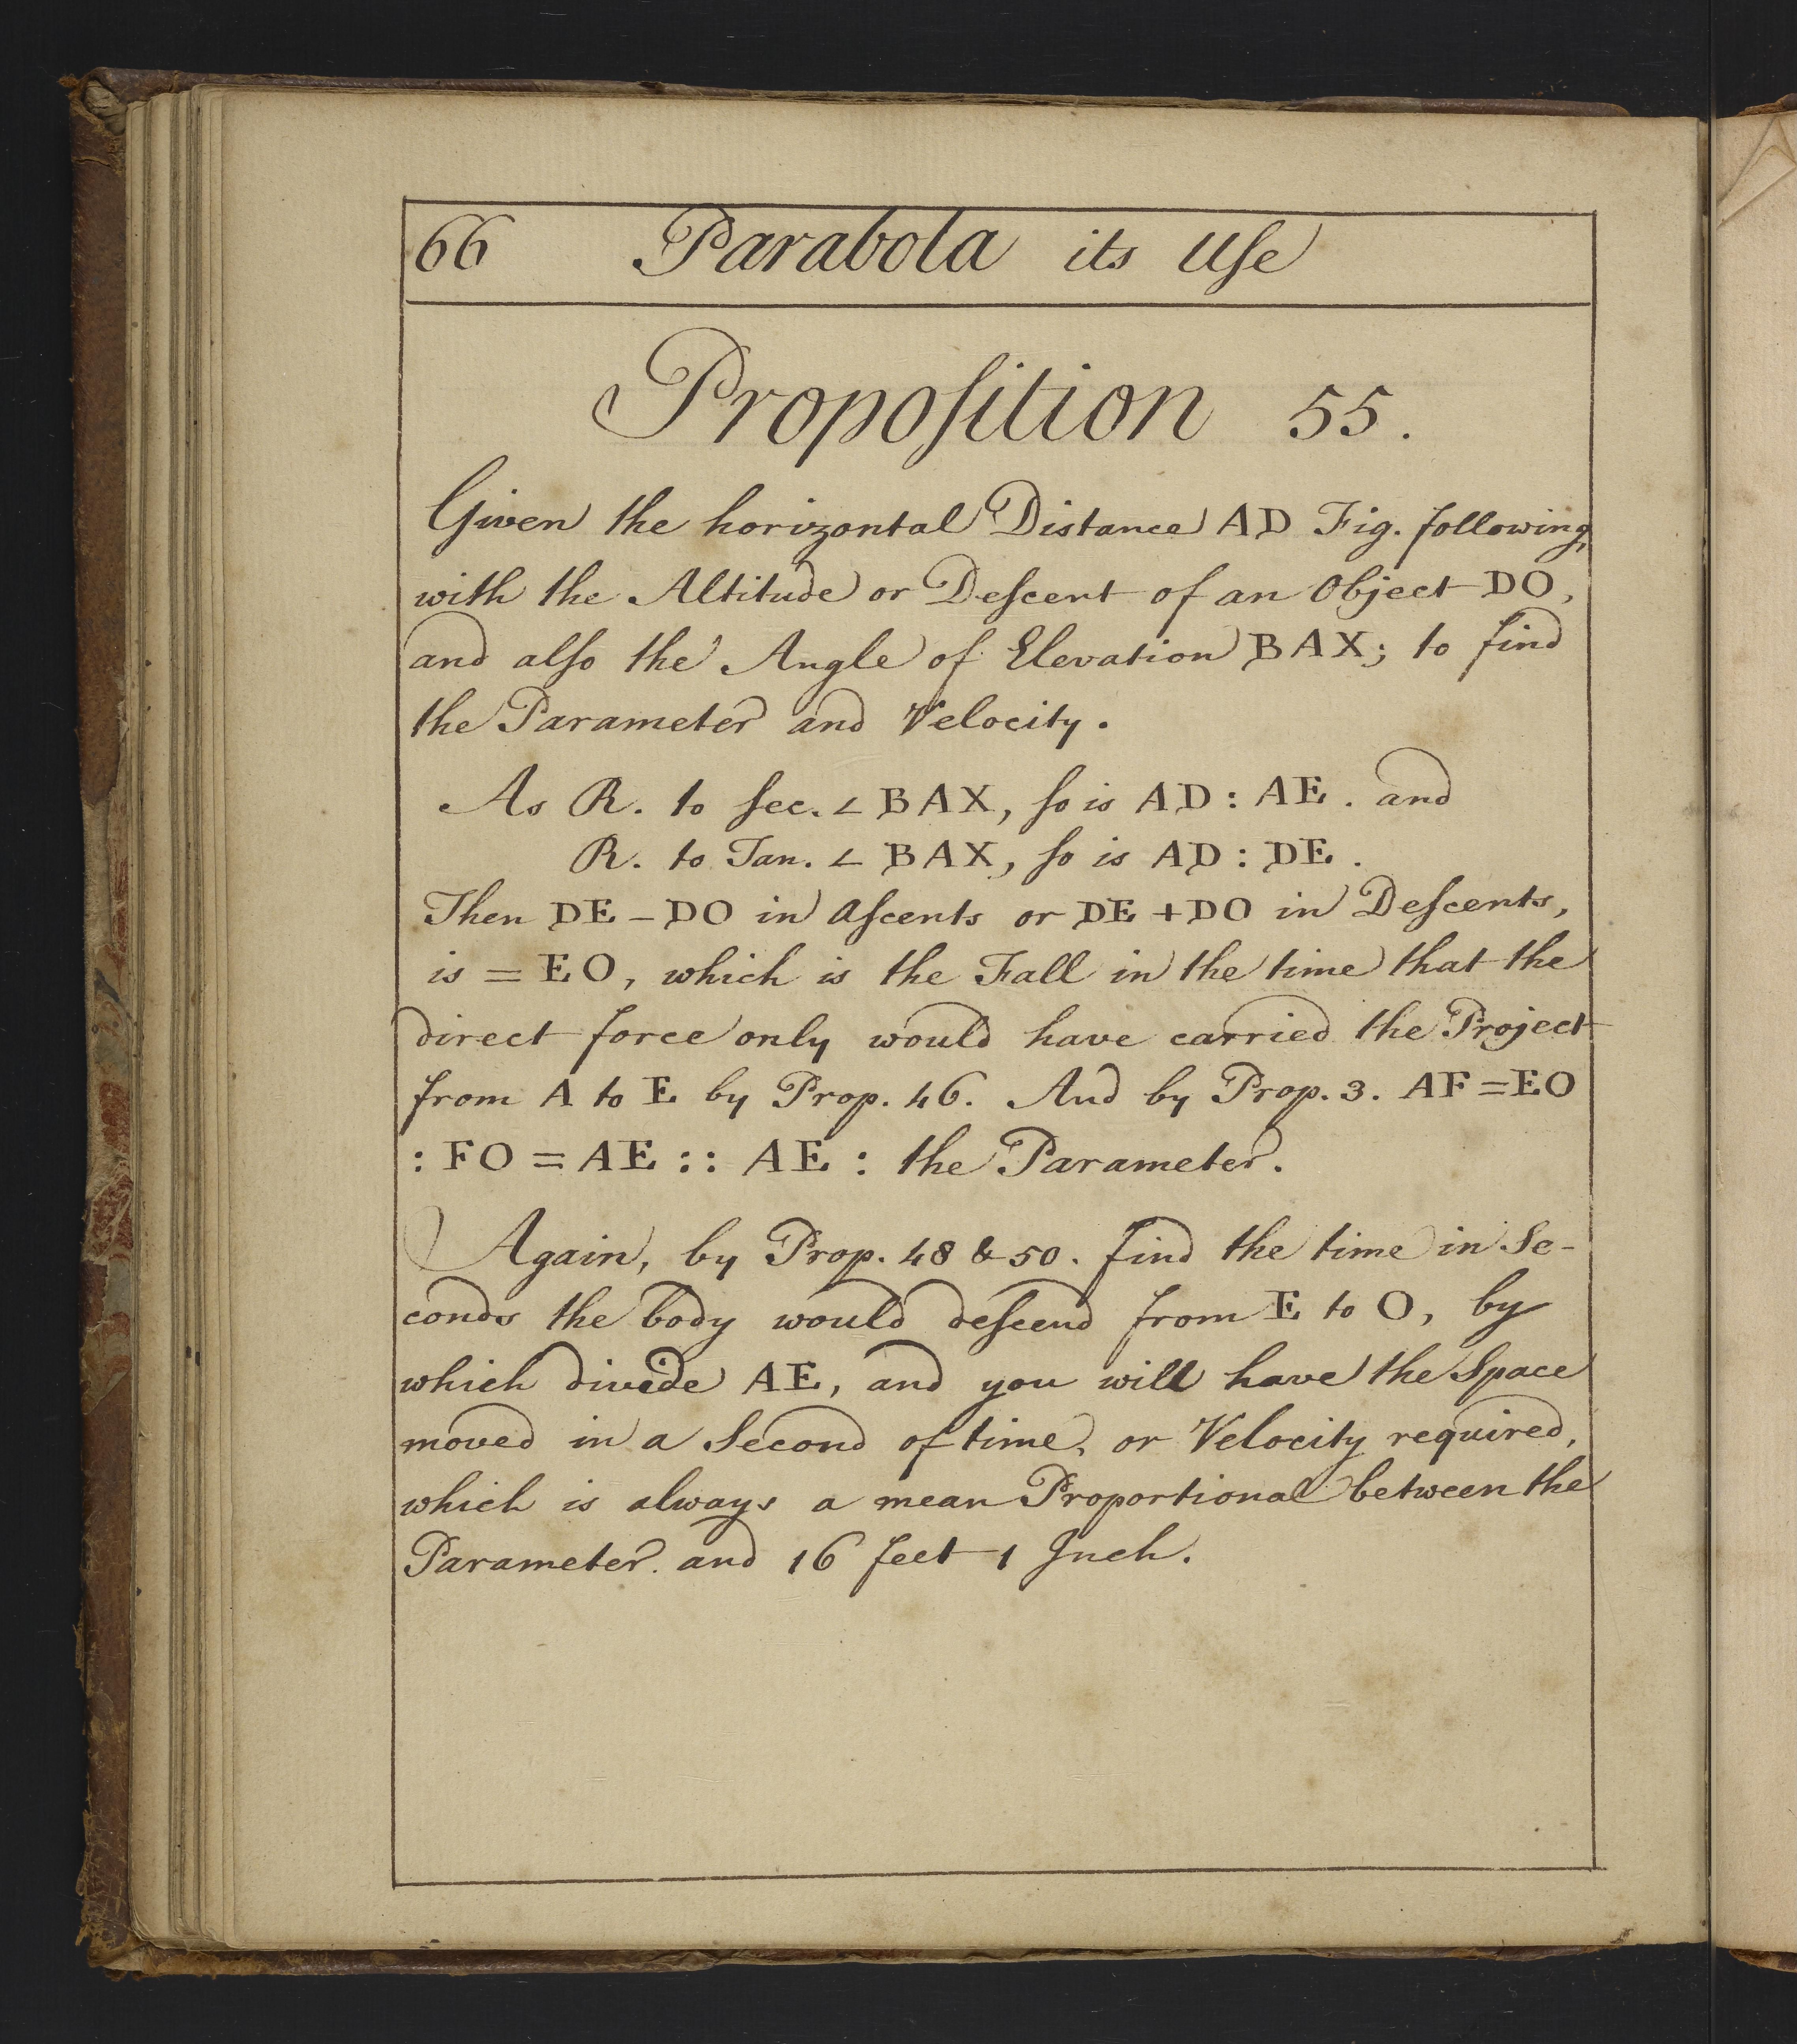 66 Parabola its Uſe
Propoſition 55.
Given the horizontal Distance AD Fig. following,
with the Altitude or Deſcent of an Object DO,
and alſo the Angle of Elevation BAX; to find
the Parameter and Velocity.
As R. to ſec. ∠ BAX, ſo is AD : AE. and
R. to Tan. ∠ BAX, ſo is AD : DE.
Then DE – DO in Aſcents or DE + DO in Deſcents,
is = EO, which is the Fall in the time that the
direct force only would have carried the Project
from A to E by Prop. 46. And by Prop. 3. AF = EO
: FO = AE :: AE : the Parameter.
Again, by Prop. 48 & 50. find the time in Se-
conds the body would deſcend from E to O, by
which divide AE, and you will have the Space
moved in a Second of time, or Velocity required,
which is always a mean Proportional between the
Parameter. and 16 feet 1 Inch.